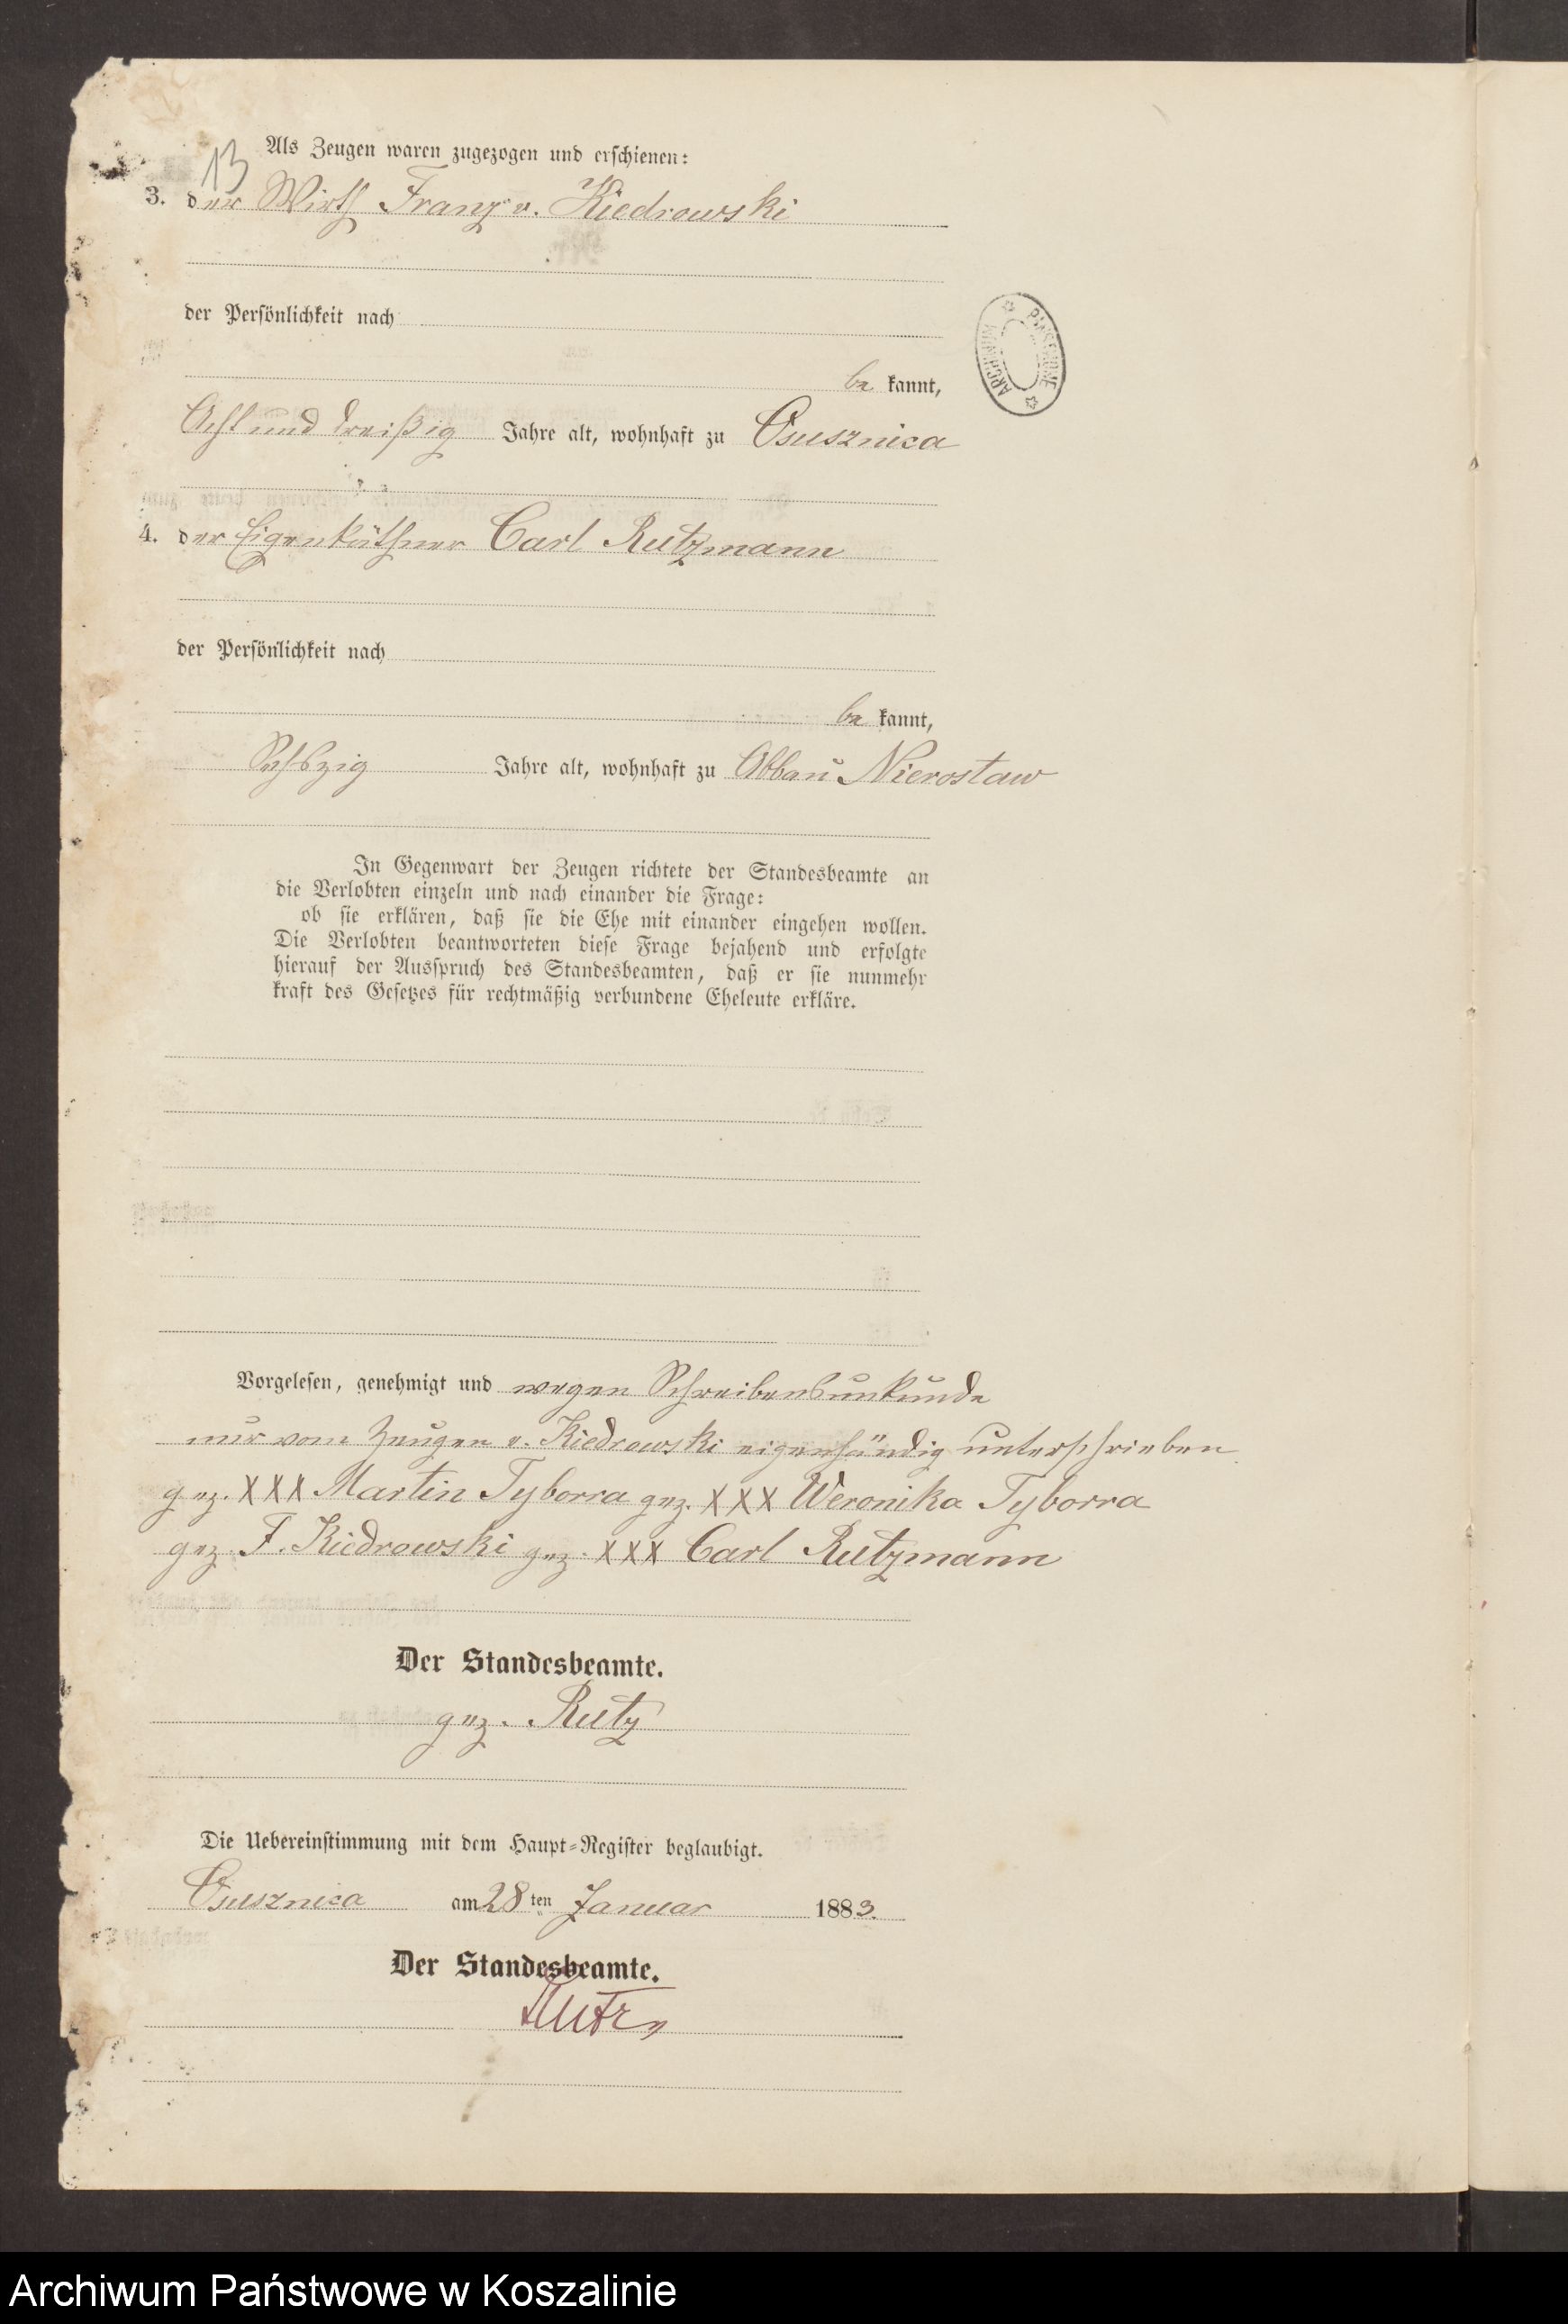 13
Als Zeugen waren zugezogen und erschienen:
3. der Wirth Franz v. Kiedrowski
der Persönlichkeit nach
be kannt,
Acht und dreißig Jahre alt, wohnhaft zu Osusznica
4. der Eigenkäthner Carl Rutzmann
der Persönlichkeit nach
be kannt,
Sechszig Jahre alt, wohnhaft zu Abbau Nierostaw
In Gegenwart der Zeugen richtete der Standesbeamte an
die Verlobten einzeln und nach einander die Frage:
ob sie erklären, daß sie die Ehe mit einander eingehen wollen.
Die Verlobten beantworteten diese Frage bejahend und erfolgte
hierauf der Ausspruch des Standesbeamten, daß er sie nunmehr
kraft des Gesetzes für rechtmäßig verbundene Eheleute erkläre.
Vorgelesen, genehmigt und wegen Schreibensunkunde
nur vom Zeugen v. Kiedrowski eigenhändig unterschrieben
gez. XXX Martin Tyborra gez. XXX Weronika Tyborra
gez. F. Kiedrowski gez. XXX Carl Rutzmann
Der Standesbeamte.
gez. Rutz
Die Uebereinstimmung mit dem Haupt=Register beglaubigt.
Osusznica am 28ten Januar 1883.
Der Standesbeamte.
Rutz
ARCHIWUM PAŃSTWOWE
Archiwum Państwowe w Koszalinie